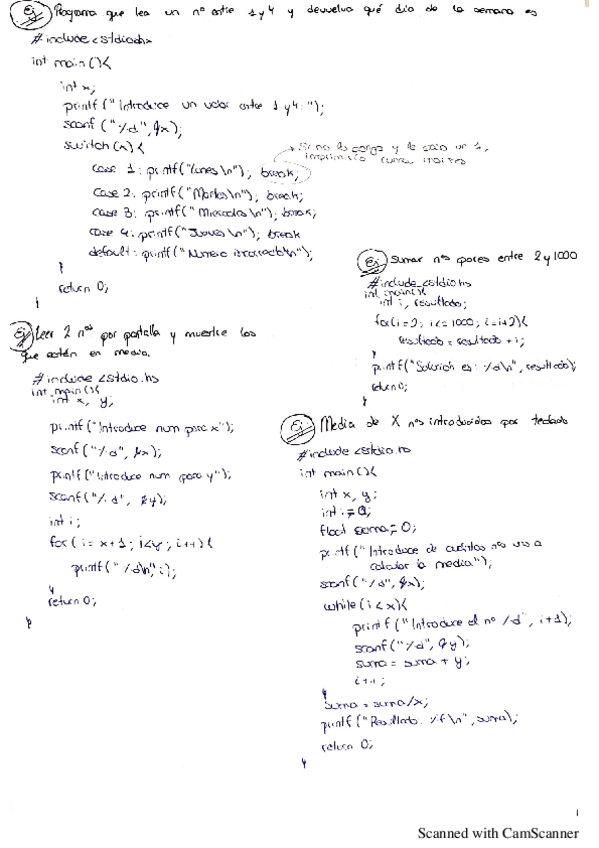 Ej Programa que lea un nº entre 1 y 4 y devuelva qué día de la semana es
#include <stdio.h>
int main(){
int x;
printf("Introduce un valor entre 1 y 4: ");
scanf("%d",&x);
switch(x){
case 1: printf("Lunes\n"); break;
→ Si no lo pongo y le sale un 1,
imprimiría Lunes, Martes
case 2: printf("Martes\n"); break;
case 3: printf("Miercoles\n"); break;
case 4: printf("Jueves\n"); break
default: printf("Numero incorrecto\n");
}
return 0;
}
Ej Sumar nºs pares entre 2 y 1000
#include <stdio.h>
int main(){
int i, resultado;
for(i=2; i<=1000; i=i+2){
resultado = resultado + i;
}
printf("Solución es: %d\n", resultado);
return 0;
}
Ej Leer 2 nºs por pantalla y muestre los
que están en medio.
#include <stdio.h>
int main(){
int x, y;
printf("Introduce num para x");
scanf("%d", &x);
printf("Introduce num para y");
scanf("%d", &y);
int i;
for( i = x+1; i<y; i++){
printf("%d\n", i);
}
return 0;
}
Ej Media de X nºs introducidos por teclado
#include <stdio.h>
int main(){
int x, y;
int i = 0;
float suma = 0;
printf("Introduce de cuántos nºs vas a
calcular la media");
scanf("%d", &x);
while(i < x){
printf("Introduce el nº %d", i+1);
scanf("%d", &y);
suma = suma + y;
i++;
}
suma = suma/x;
printf("Resultado: %f\n", suma);
return 0;
}
1
Scanned with CamScanner